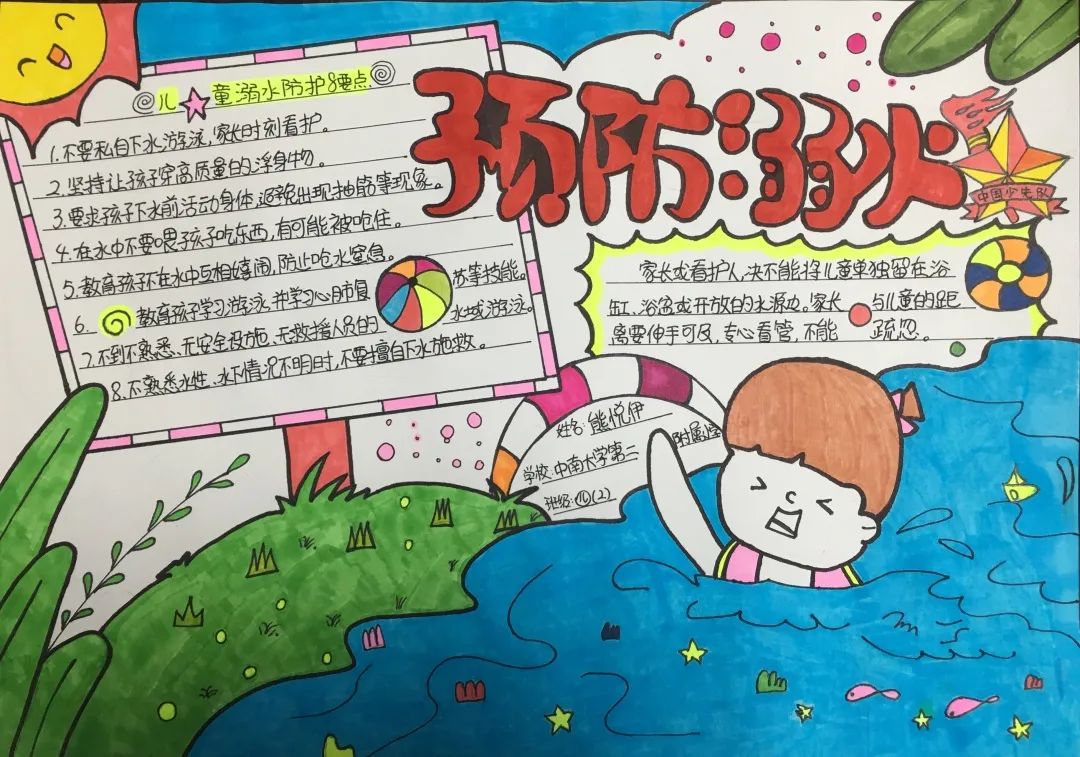 儿童溺水防护8要点
1.不要私自下水游泳,家长时刻看护。
2.坚持让孩子穿高质量的浮身物。
3.要求孩子下水前活动身体,避免出现抽筋等现象。
4.在水中不要喂孩子吃东西,有可能被呛住。
5.教育孩子不在水中互相嬉闹,防止呛水窒息。
6.教育孩子学习游泳,并学习心肺复苏等技能。
7.不到不熟悉、无安全设施、无救援人员的水域游泳。
8.不熟悉水性、水下情况不明时,不要擅自下水施救。
预防溺水
中国少先队
家长或看护人,决不能将儿童单独留在浴
缸、浴盆或开放的水源边。家长与儿童的距
离要伸手可及,专心看管,不能疏忽。
姓名:熊悦伊
学校:中南大学第二附属
班级:(2)